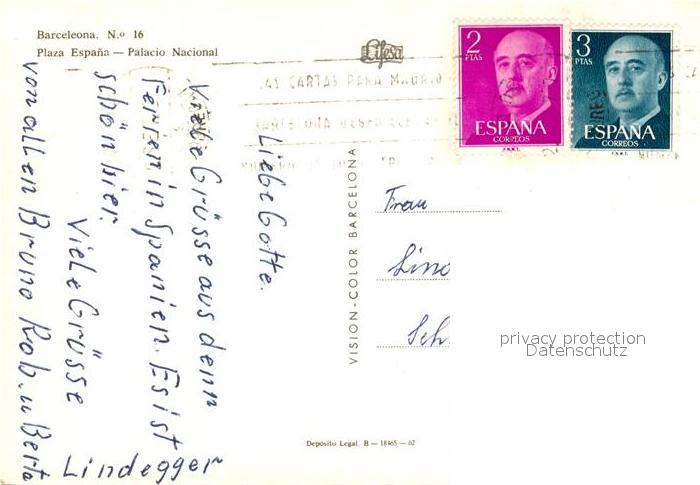 Barcelona. N.º 16
Plaza España — Palacio Nacional
Lifesa
2
PTAS
ESPAÑA
CORREOS
3
PTAS
ESPAÑA
CORREOS
CARTAS PARA MADRID
BARCELONA
Liebe Gotte.
Viele Grüsse aus denn
Ferien in Spanien. Es ist
schön hier.
Viele Grüsse
von allen Bruno Rob. u Berta
Lindegger
VISION-COLOR BARCELONA
Frau
Depósito Legal. B — 18465 — 62
privacy protection
Datenschutz